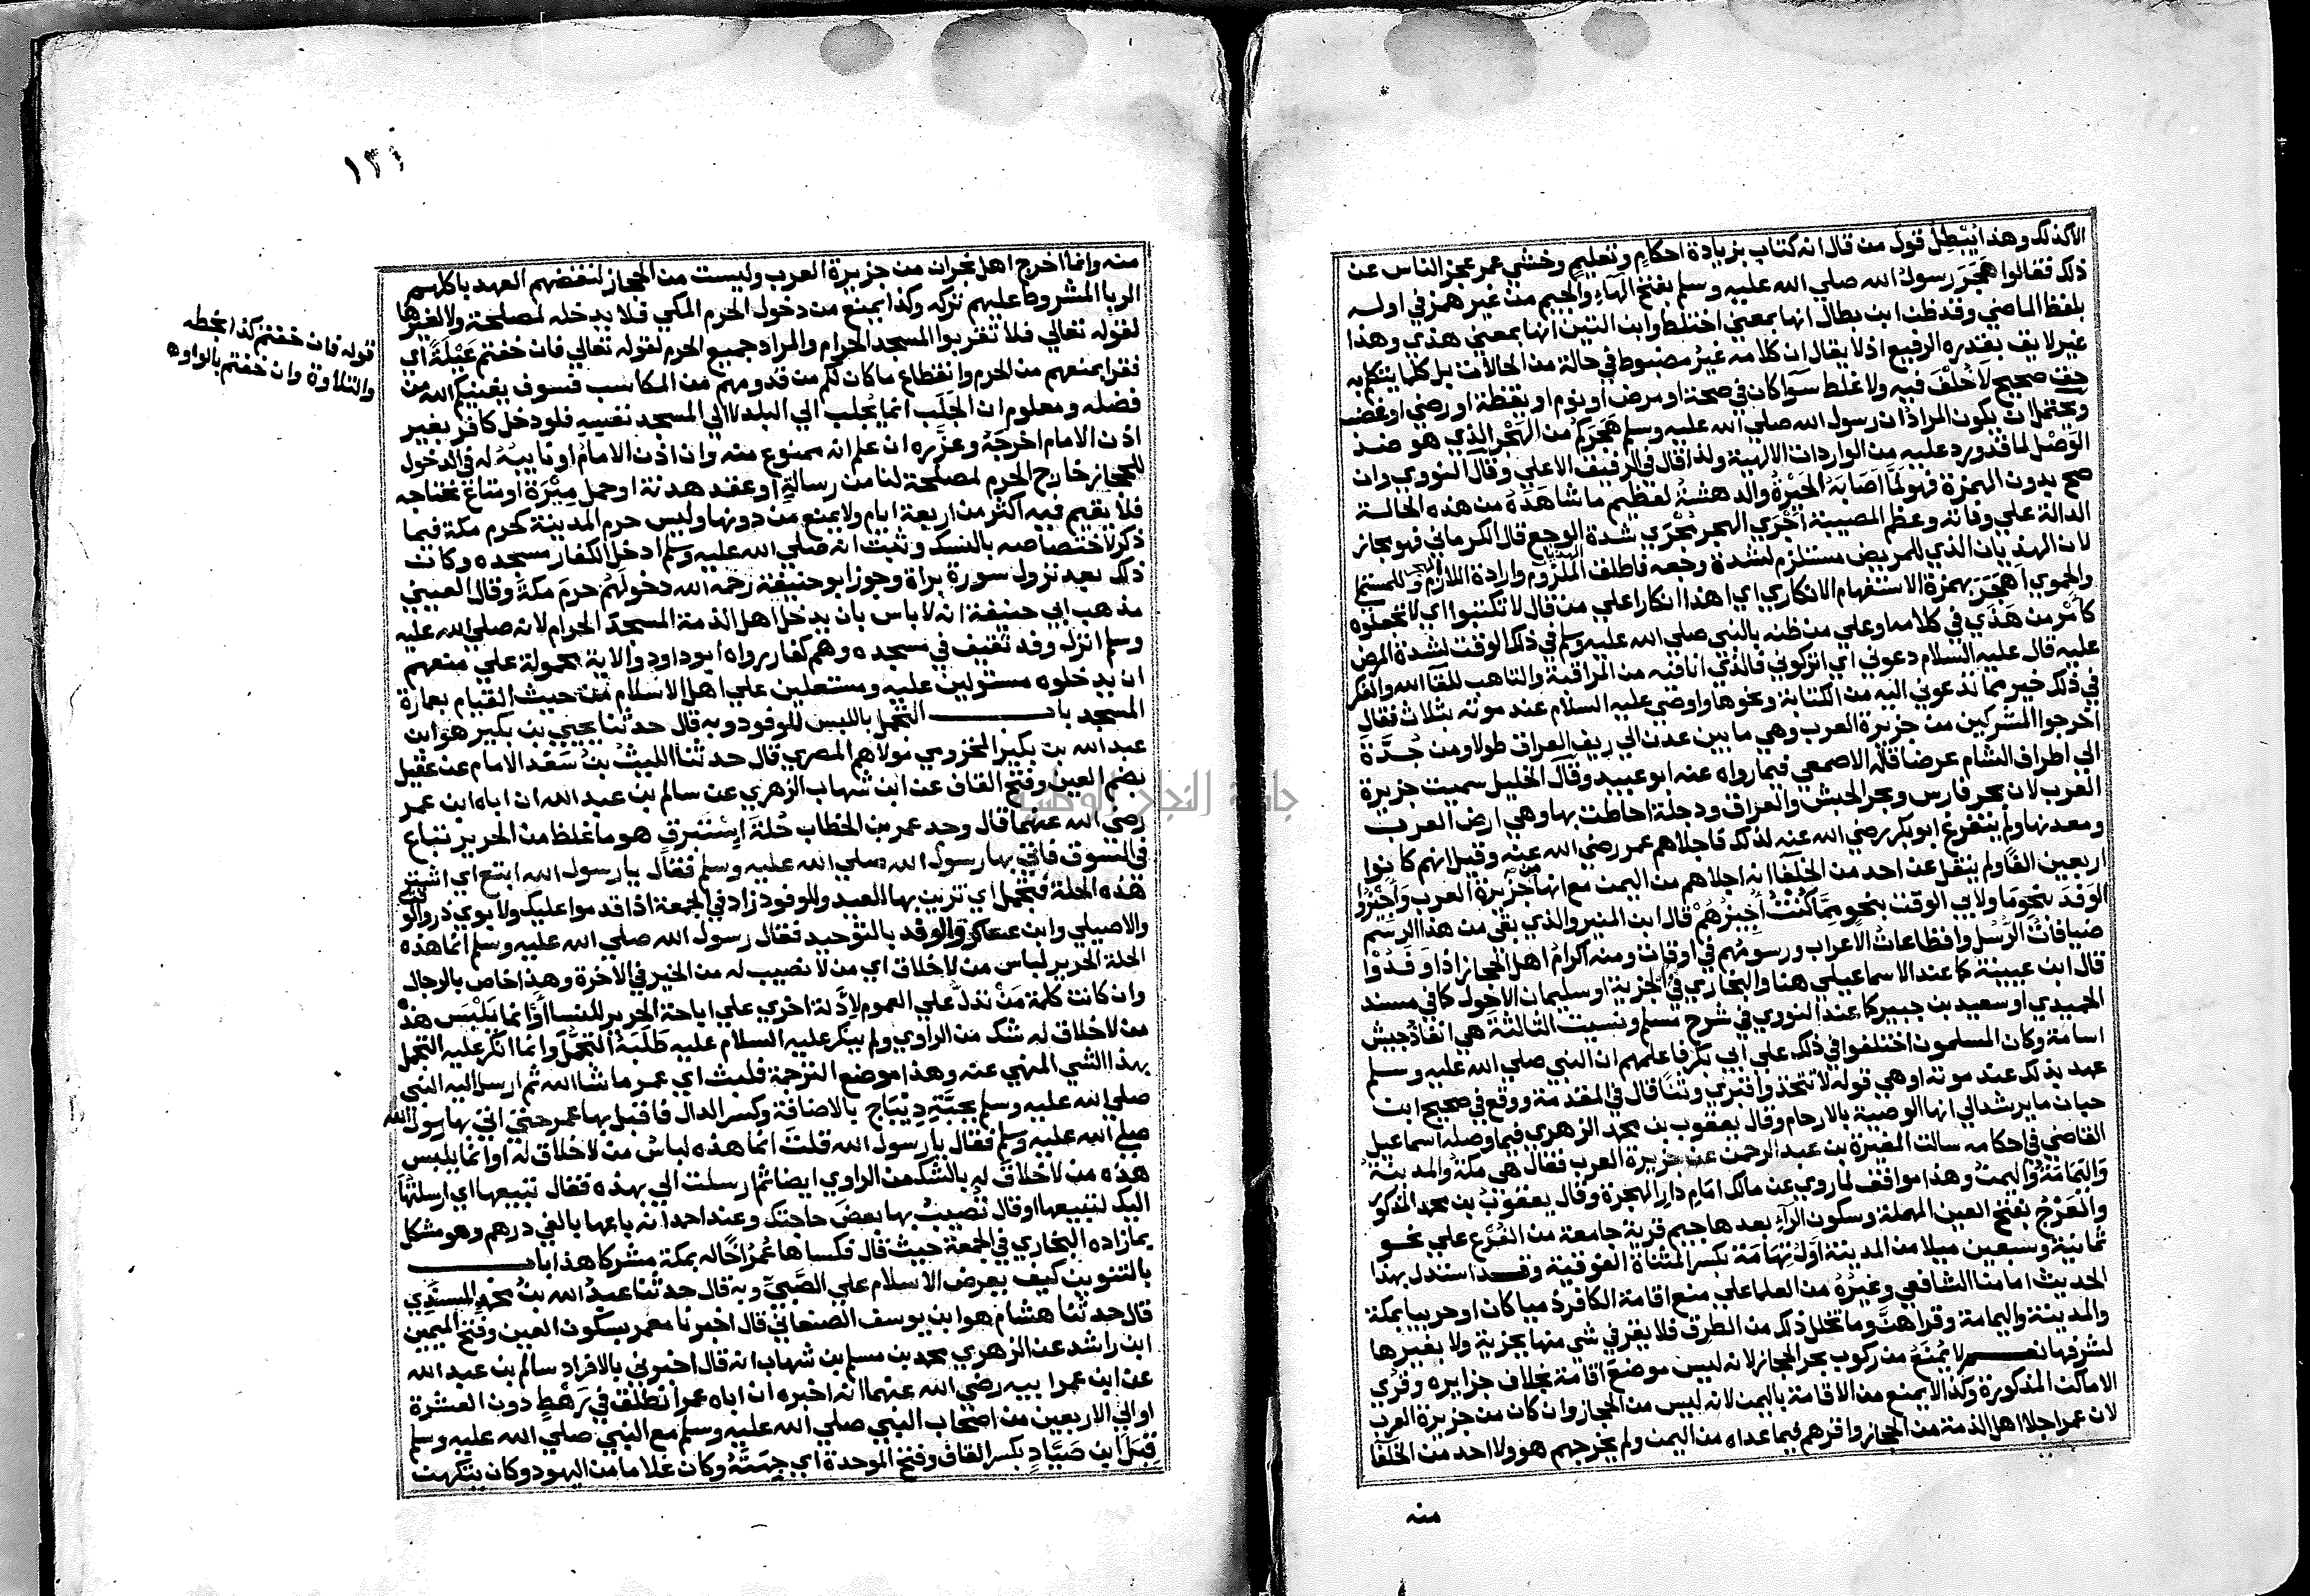 الا كذلك وهذا يبطل قول من قال انه كتاب بزيادة احكام وتعليم وخشي عمر عجز الناس عن
ذلك فقالوا هَجَرَ رسول الله صلي الله عليه وسلم بفتح الهاء والجيم من غير همز في اوله
بلفظ الماضي وقد ظن ابن بطال انها بمعني اختلط وابن التين انها بمعني هذي وهذا
غير لايق بقدره الرفيع اذ لا يقال ان كلامه غير مضبوط في حالة من الحالات بل كلما يتكلم به
حق صحيح لا خُلْفَ فيه ولا غلط سوآ كان في صحة او مرض او نوم او يقظة او رضي او غضب
ويحتمل ان يكون المراد ان رسول الله صلي الله عليه وسلم هَجَرَكُم من الهَجْر الذي هو ضد
الوَصْل لما قد ورد عليه من الواردات الالهية ولذا قال في الرفيق الاعلي وقال النووي وان
صح بدون الهمزة فهو لما اصابَهُ الحَيْرَةُ والدهشة لعظيم ما شاهَدَهُ من هذه الحالة
الدالة علي وفاته وعظم المصيبة اَجْرَي الهجر مُجْرَي شدة الوجع قال الكرماني فهو مجاز
لان الهذيان الذي للمريض مستلزم لشدة وجعه فاطلق الملزوم وارادة اللازم وللمستملي
والحموي اَهَجَرَ بهمزة الاستفهام الانكاري اي اهذا انكارا علي من قال لا تكتبوا اي لا تجعلوه
كاَمْرِ من هَذَي في كلامه او علي من ظنه بالنبي صلي الله عليه وسلم في ذلك الوقت لشدة المرض
عليه قال عليه السلام دعوني اي اتركوني فالذي انا فيه من المراقبة والتاهب للقآ الله والفكر
في ذلك خير مما تدعوني اليه من الكتابة ونحوها واوصي عليه السلام عند موته بثلاث فقال
اخرجوا المشركين من جزيرة العرب وهي ما بين عدن الي ريف العراق طولا ومن جُدَّة
الي اطراف الشام عرضا قاله الاصمعي فيما رواه عنه ابو عبيد وقال الخليل سميت جزيرة
العرب لان بحر فارس وبحر الحبش والعراق ودجلة احاطت بها وهي ارض العرب
ومعدنها ولم يتفرغ ابو بكر رضي الله عنه لذلك فاجلاهم عمر رضي الله عنه وقيل انهم كانوا
اربعين الفا ولم ينقل عن احد من الخلفآ انه اجلاهم من اليمن مع انها من جزيرة العرب وَاَجِيْزُوا
الوَفْدَ بنحو ما ولابي الوقت بنحوٍ مِمَّا كُنْتُ اُجِيْزُهُمْ قال ابن المنير والذي بقي من هذا الرسم
ضيافاتُ الرُسُل واقطاعات الاَعراب ورسومُهم في اوقات ومنه اكرامُ اهل الحجاز اذا وَفَدُوْا
قال ابن عيينة كما عند الاسماعيلي هنا والبخاري في الجزية او سليمان الاحول كما في مسند
الحميدي او سعيد بن جبير كما عند النووي في شرح مسلم ونسيت الثالثة هي انفاذ جيش
اسامة وكان المسلمون اختلفوا في ذلك علي ابي بكر فاعلمهم ان النبي صلي الله عليه وسلم
عهد بذلك عند موته او هي قوله لا تتخذوا قبري وثنا قال في المقدمة ووقع في صحيح ابن
حبان ما يرشد الي انها الوصية بالارحام وقال يعقوب بن محمد الزهري فيما وصله اسماعيل
القاضي في احكامه سالت المغيرة بن عبد الرحمن عن جزيرة العرب فقال هي مكة والمدينة
وَاليَمَامَةُ وَاليمن وهذا موافق لما روي عن مالك امام دار الهجرة وقال يعقوبُ بن محمد المذكور
والعَرْجُ بفتح العين المهملة وسكون الرآء بعدها جيم قرية جامعة من الفُرْع علي نحو
ثمانية وسبعين ميلا من المدينة اول تِهامَة بكسر المثناة الفوقية وقد استدل بهذا
الحديث امامنا الشافعي وغيره من العلما علي منع اقامة الكافر ذميا كان او حربيا بمكة
والمدينة واليمامة وقراهنَّ وما تخلل ذلك من الطرق فلا يقر في شي منها بجزية ولا بغيرها
لشرفها نعم لا يُمنَعُ من ركوب بحر الحجاز لانه ليس موضع اقامة بخلاف جزايره وقري
الاماكن المذكورة وكذا لا يمنع من الاقامة باليمن لانه ليس من الحجاز وان كان من جزيرة العرب
لان عمر اجلا اهل الذمة من الحجاز واقرهم فيما عداه من اليمن ولم يخرجهم هو ولا احد من الخلفا
منه
١٣٤
منه وانما اخرج اهل نجران من جزيرة العرب وليست من الحجاز لنقضهم العهد باكلهم
الربا المشروط عليهم تركه وكذا يمنع من دخول الحرم المكي فلا يدخله لمصلحة ولا لغيرها
لقوله تعالي فلا تقربوا المسجد الحرام والمراد جميع الحرم لقوله تعالي فان خفتم عَيْلَةً اي
فقرا بمنعهم من الحرم وانقطاع ما كان لكم من قدومهم من المكاسب فسوف يغنيكم الله من
فضله ومعلوم ان الجَلَب انما يُجلب الي البلد لا الي المسجد نفسه فلو دخل كافر بغير
اذن الامام اخرجَهُ وعَزَّره ان علم انه ممنوع منه وان اذن الامامُ او نايبُهُ له في الدخول
للحجاز خارج الحرم لمصلحة لنا من رسالةٍ او عقد هدنة او حمل مِيْرَة او متاع نحتاجه
فلا يقيم فيه اكثر من اربعة ايام ولا يمنع من دونها وليس حرم المدينة كحرم مكة فيما
ذكر لاختصاصه بالنسك وثبت انه صلي الله عليه وسلم ادخل الكفار مسجده وكانت
ذلك بعد نزول سورة براة وجوز ابو حنيفة رحمه الله دخولَهُم حرمَ مكة وقال العيني
مذهب ابي حنيفة انه لا باس بان يدخل اهل الذمة المسجدَ الحرام لانه صلي الله عليه
وسلم انزل وفد ثقيف في مسجده وهم كفار رواه ابو داود والاية محمولة علي منعهم
ان يدخلوه مستولين عليه ومستعلين علي اهل الاسلام من حيث القيام بعمارة
المسجد باب التجمل باللبس للوفود وبه قال حدثنا يحيي بن بكير هو ابن
عبد الله بن بكير المخزومي مولاهم المصري قال حدثنا الليثُ بنُ سَعْد الامام عن عقيل
بضم العين وفتح القاف عن ابن شهاب الزهري عن سالم بن عبد الله ان اباه ابن عمر
رضي الله عنهما قال وجد عمر بن الخطاب حُلَةَ اِسْتَبْرَقٍ هو ما غلظ من الحرير تباع
في السوق فاتي بها رسول الله صلي الله عليه وسلم فقال يا رسول الله ابتع اي اشتر
هذه الحلة فتجمل اي تزين بها للعيد وللوفود زاد في الجمعة اذا قدموا عليك ولابوي ذر والوقت
والاصيلي وابن عساكر والوفد بالتوحيد فقال رسول الله صلي الله عليه وسلم انما هذه
الحلة الحرير لباس من لا خلاق اي من لا نصيب له من الخير في الاخرة وهذا خاص بالرجال
وان كانت كلمة مَنْ تدلّ علي العموم لاِدَلة اخري علي اباحة الحرير للنسا اَوْ انما يَلْبَس هذه
من لا خلاق له شك من الراوي ولم ينكر عليه السلام عليه طَلَبَهُ التجَمُّل وانما انكر عليه التجمل
بهذا الشي المنهي عنه وهذا موضع الترجمة فلبث اي عمر ما شا الله ثم ارسل اليه النبي
صلي الله عليه وسلم بجبَّةِ دِيْبَاج بالاضافة وكسر الدال فاقبل بها عمر حتي اتي بها رسول الله
صلي الله عليه وسلم فقال يا رسول الله قلتَ انما هذه لباسُ من لا خلاق له او انما يلبس
هذه من لا خلاقَ له بالشك من الراوي ايضا ثم ارسلت الي بهذه فقال تبيعها اي ارسلتُها
اليك لتبيعها او قال تُصيبُ بها بعضَ حاجتك وعند احمد انه باعها بالفي درهم وهو مشكل
بما زاده البخاري في الجمعة حيث قال فكساها عُمَرُ اخًا له بمكة مشركا هذا باب
بالتنوين كيف يعرض الاسلام علي الصَّبيِّ وبه قال حدثنا عبدُ الله بنُ محمدٍ المسندي
قال حدثنا هشام هو ابن يوسف الصنعاني قال اخبرنا معمر بسكون العين وفتح الميمين
ابن راشد عن الزهري محمد بن مسلم بن شهاب انه قال اخبرني بالافراد سالم بن عبد الله
عن ابن عمر ابيه رضي الله عنهما انه اخبره ان اباه عمرَ انطلق في رَهْطٍ دون العشرة
او الي الاربعين من اصحاب النبي صلي الله عليه وسلم مع النبي صلي الله عليه وسلم
قِبَلَ ابن صَيَّادٍ بكسر القاف وفتح الموحدة اي جِهَتَهُ وكان غلاما من اليهود وكان يتكهن
قوله فان خفتم كذا بخطه
والتلاوة وان خفتم بالواو